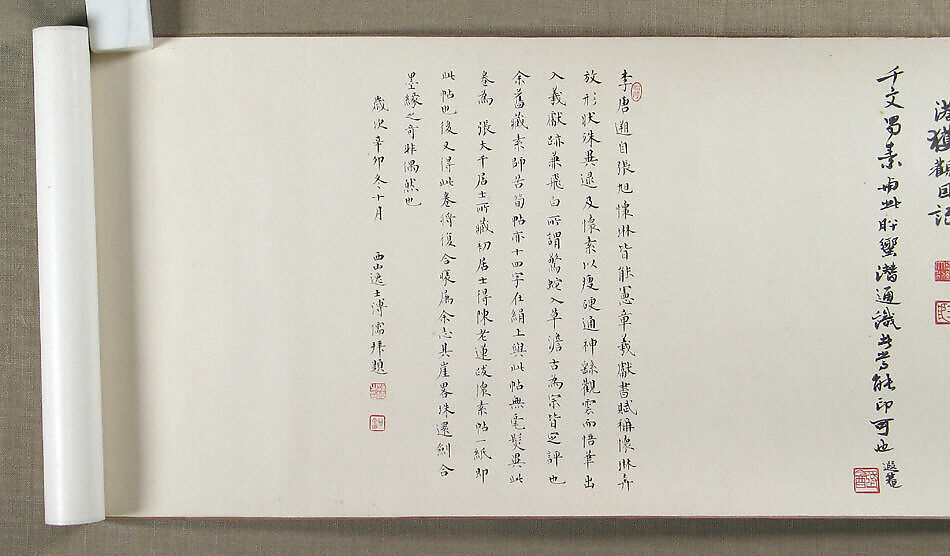 獲觀因記
千文蜀素與此肸蠁潛通識者當能印可也 遐菴
李唐遡自張旭懷琳皆能憲章羲獻書賦稱懷琳弃
放形狀殊異逮及懷素以瘦硬通神繇觀雲而悟筆出
入羲獻跡兼飛白所謂驚蛇入草澹古為宗皆定評也
余舊藏素師苦筍帖亦十四字在絹上與此帖無毫髮異此
卷為張大千居士所藏初居士得陳老蓮跋懷素帖一紙即
此帖也後又得此卷將復合裝屬余志其崖畧珠還劍合
墨緣之奇非偶然也
歲次辛卯冬十月 西山逸士溥儒拜題